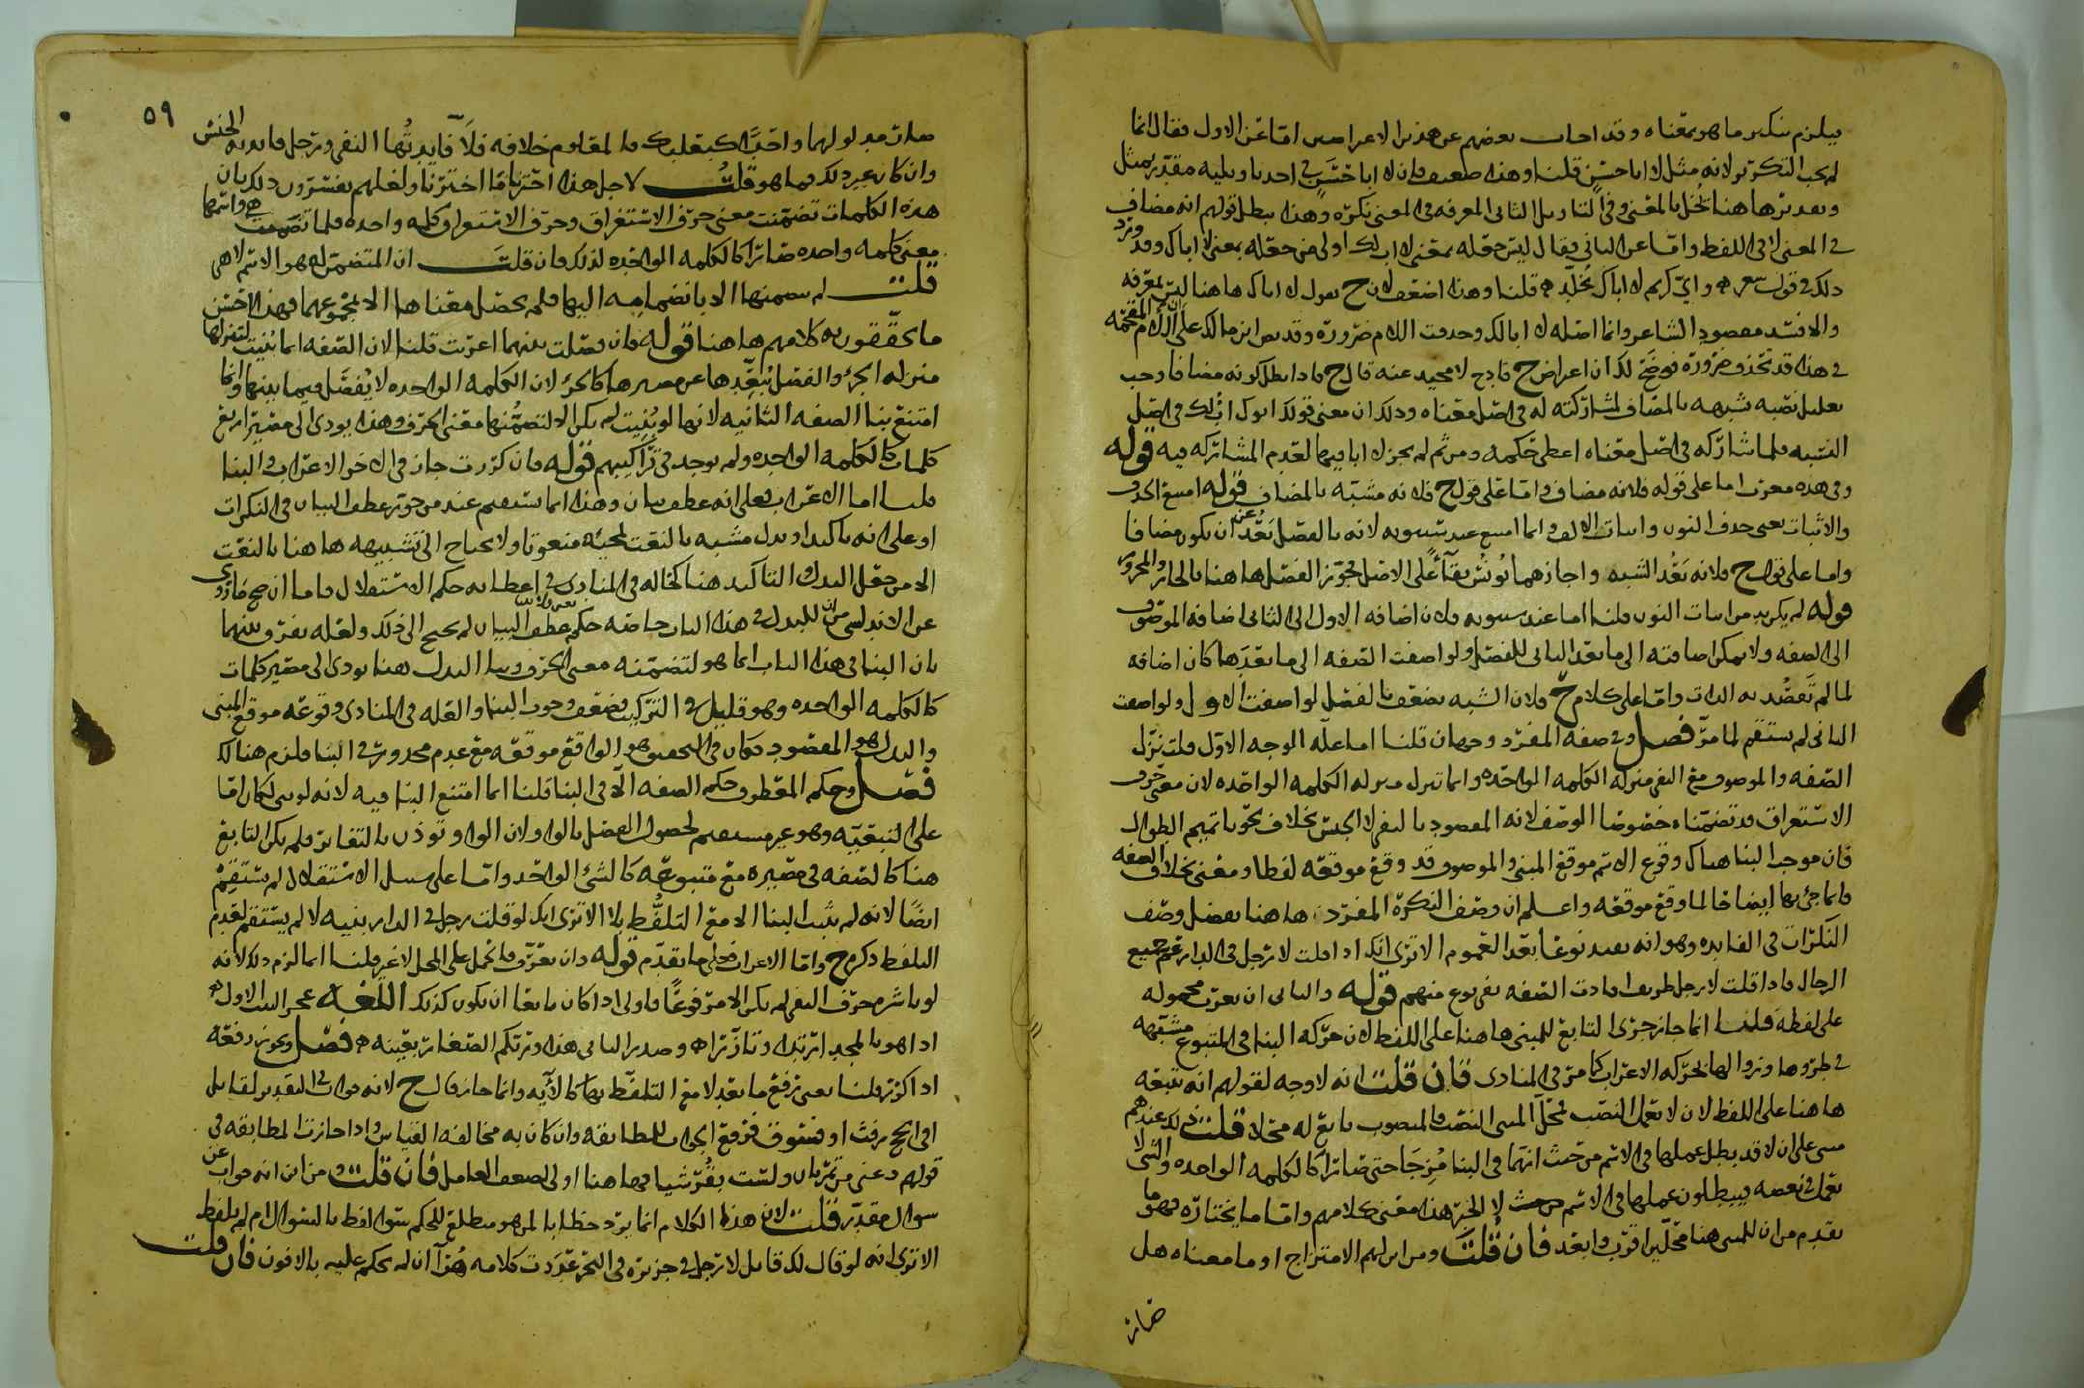 فيلزم تنكير ما هو بمعناه وقد اجاب بعضهم عن هذين الاعراضين اما عن الاول فقال انما
لم يجب التكرير لانه مثل لا ابا حسن قلنا وهذا ضعيف فان لا ابا حسن في احد تاويليه مقدر بمثل
وتقديرها هنا يخل بالمعنى وفي التاويل الثاني المعرفه في المعنى نكره وهذا يبطل قولهم انه مضاف
في المعنى لا في اللفظ واما عن الثاني فقال ليس جعله بمعنى لا اب لك اولى من جعله بمعنى لا اباك وقد ورد
ذلك في قول واي كريم لا اباك يخلد قلنا وهذا اضعف لان ح يقول لا اباك هاهنا ليس بمعرفه
والا فسد مقصود الشاعر وانما اصله لا ابا لك وحذفت اللام ضروره وقد نص ابن مالك على ان اللام المقحمه
في هذا قد تحذف ضرورة فوضح لك ان اعراض ح قادح لا محيد عنه قال ح فاذا بطل كونه مضافا وجب
تعليل نصبه بشبهه بالمضاف لمشاركته له في اصل معناه وذلك ان معنى قولك ابوك اب لك في اصل
النسبه فلما شاركه في اصل معناه اعطي حكمه ومن ثم لم يجز لا ابا فيها لعدم المشاركه فيه قوله
وفي هذه معرب اما على قوله فلانه مضاف واما على قول ح فلانه مشبه بالمضاف قوله امتنع الحذف
والاثبات يعني حذف النون واثبات الالف وانما امتنع عند سيبويه لانه بالفصل بعد عن ان يكون مضافا
واما على قول ح فلانه بعد الشبه واجازهما يونس بقاءً على الاصل فجوز الفصل هاهنا بالجار والمجرور
قوله لم يكن بد من اثبات النون قلنا اما عند سيبويه فلان اضافه الاول الى الثاني اضافه الموصوف
الى الصفه ولا يمكن اضافته الى ما بعد الثاني للفصل ولو اضفت الصفه الى ما بعدها كان اضافه
لما لم تقصد به الذات واما على كلام ح فلان الشبه يضعف بالفصل لو اضفت الاول ولو اضفت
الثاني لم يستقم لما مر فصل وفي صفه المفرد وجهان قلنا اما علة الوجه الاول فلتنزل
الصفه والموصوف مع النفي منزله الكلمه الواحده وانما تنزل منزله الكلمه الواحده لان معنى حرف
الاستغراق قد تضمناه خصوصا الوصف لانه المقصود بالنفي لا الجنس بخلاف نحو يا تميم الطوال
فان موجب البنا هناك وقوع الاسم موقع المبني والموصوف قد وقع موقعه لفظا ومعنى بخلاف الصفه
فانما جئ بها ايضاحا لما وقع موقعه واعلم ان وصف النكرة المفرده هاهنا بفضل وصف
النكرات في الفايده وهو انه يفيد نوعا بعد العموم الا ترى انك اذا قلت لا رجل في الدار عم جميع
الرجال فاذا قلت لا رجل ظريف افادت الصفه نفي نوع منهم قوله والثاني ان يعرب محموله
على لفظه قلنا انما جاز جرى التابع للمبني هاهنا على اللفظ لان حركه البنا في المتبوع مشبهه
في طروها وزوالها بحركه الاعراب كما مر في المنادى فان قلت انه لا وجه لقولهم انه تبعه
هاهنا على اللفظ لان لا تعمل النصب فمحل المبني النصب والمنصوب تابع له محلا قلت ذلك عندهم
مبني على ان لا قد بطل عملها في الاسم من حيث انهما في البنا مزجا حتى صارا كالكلمه الواحده والشي لا
يعمل في بعضه فيبطلون عملها في الاسم من حيث لا الخبر هذا معنى كلامهم واما ما يختاره فهو ما
تقدم من ان للمبني هنا محلين اقرب وابعد فان قلت ومن اين لهم الامتزاج او ما معناه هل
صار
٥٩
صار مدلولهما واحدًا كبعلبك فالمقام خلافه فلا فايدتها النفي ورجل فايدته الجنس
وان كان غير ذلك فما هو قلت لاجل هذا اخترنا ما اخترنا ولعلهم يفسرون ذلك بان
هذه الكلمات تضمنت معنى حرف الاستغراق وحرف الاستغراق كلمه واحده فلما تضمنت هي واسمها
معنى كلمه واحده صارا كالكلمه الواحده لذلك فان قلت ان المتضمن له هو الاسم لا هي
قلت لم يتضمنها الا بانضمامه اليها فلم يحصل معناها الا بمجموعهما فهذا احسن
ما يحققون به كلامهم هاهنا قوله فان فصلت بينهما اعربت قلنا لان الصفه انما بنيت لتنزلها
منزله الجزء والفصل يبعدها عن مصيرها كالجزء لان الكلمه الواحده لا يفصل فيما بينها وانما
امتنع بنا الصفه الثانيه لانها لو بنيت لم يكن الا لتضمنها معنى الحرف وهذا يودي الى مصير اربع
كلمات كالكلمه الواحده ولم يوجد في تراكيبهم قوله فان كررت جاز في الاخر الاعراب والبنا
قلنا اما الاعراب فعلى انه عطف بيان وهذا انما يستقيم عند من جوز عطف البيان في النكرات
او على انه تاكيد او بدل مشبه بالنعت لمجيئه منعوتا ولا يحتاج الى تشبيهه هاهنا بالنعت
الا من جعل البدل والتاكيد هنا كحاله في المنادى في اعطايه حكم الاستقلال فاما ان صح ما روي
عن الاندلسي من ان للبدل في هذا الباب خاصه حكم عطف البيان لم يحتج الى ذلك ولعله يفرق بينهما
بان البنا في هذا الباب انما هو لتضمنه معنى الحرف وبنا البدل هنا يودي الى مصير كلمات
كالكلمه الواحده وهو قليل في التركيب فضعف وجوب البنا والعله في المنادى وقوعه موقع المبنى
والبدل هو المقصود فكان في التحقيق هو الواقع موقعه مع عدم محذور في البنا فلزم هنالك
فصل وحكم المعطوف حكم الصفه الا في البنا قلنا انما امتنع البنا فيه لانه لو بني لكان اما
على التبعيه وهو غير مستقيم لحصول الفصل بالواو ولان الواو توذن بالتغاير فلم يكن التابع
هنا كالصفه في مصيره مع متبوعه كالشئ الواحد واما على سبيل الاستقلال لم يستقم
ايضًا لانه لم يثبت البنا الا مع التلفظ بلا الا ترى انك لو قلت رجل في الدار بنيه لا لم يستقم لعدم
التلفظ ذكره ح واما الاعراب فعلى ما تقدم قوله وان تعرف فالحمل على المحل لا غير قلنا انما لزم ذلك لانه
لو باشره حرف النفي لم يكن الا مرفوعًا فاولى اذا كان تابعا ان يكون كذلك اللغه عجز البيت الاول
اذا هو بالمجد ارتدى وتازرا وصدر الثاني هذا وربكم الصغار بعينه فصل ويجوز رفعه
اذا كرر قلنا يعني رفع ما بعد لا مع التلفظ بها كالآيه وانما جاز قال ح لانه جواب في التقدير لقايل
افي الحج رفث او فسوق فرفع الجواب للمطابقه وان كان به مخالفه القياس واذا جازت المطابقه في
قولهم دعني من تمرتان ولست بقرشيا فهاهنا اولى لضعف العامل فان قلت ومن اين انه جواب عن
سوال مقدر قلت لان هذا الكلام انما يرد خطابا لمن هو متطلع للحكم سوا لفظ بالسوال ام لم يلفظ
الا ترى انه لو قال لك قايل لا رجل في جزيره في البحر عددت كلامه هزأ ان لم تحكم عليه بالافون فان قلت